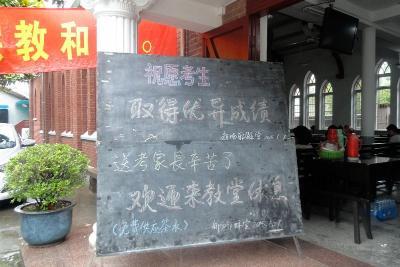 教和
祝愿考生
取得优异成绩
送考家長辛苦了
欢迎来教堂休息
(免费供应茶水)